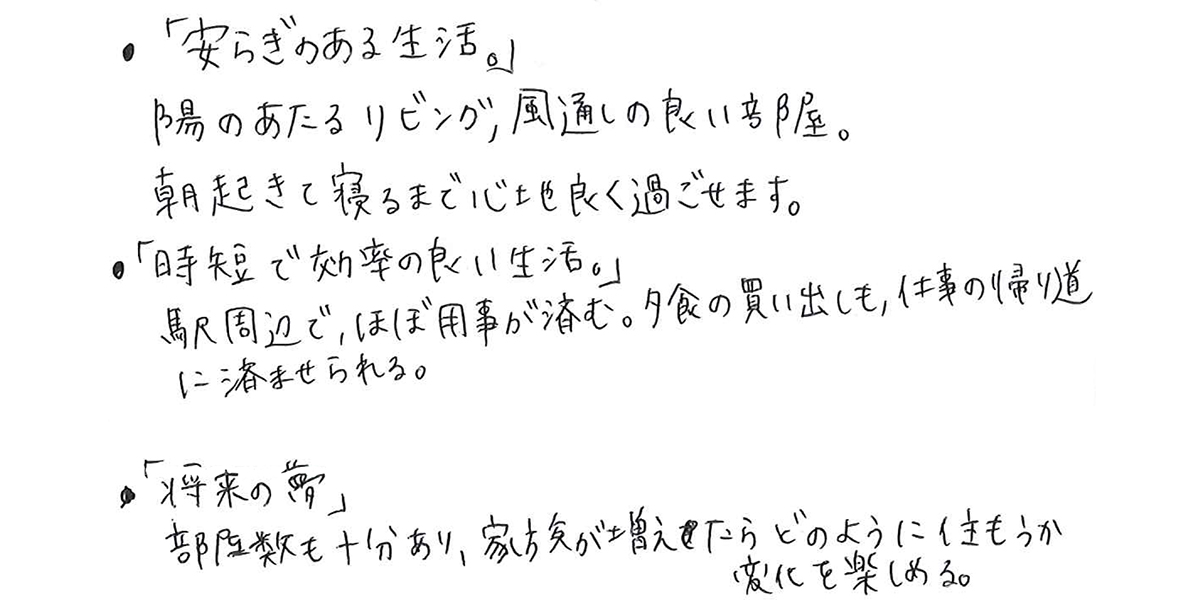 ・「安らぎのある生活。」
陽のあたるリビング,風通しの良い部屋。
朝起きて寝るまで心地良く過ごせます。
・「時短で効率の良い生活。」
駅周辺で,ほぼ用事が済む。夕食の買い出しも,仕事の帰り道
に済ませられる。
・「将来の夢」
部屋数も十分あり,家族が増えたらどのように住もうか
変化を楽しめる。